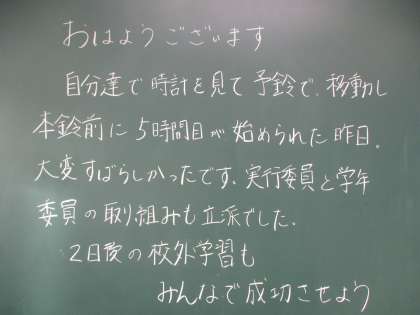 おはようございます
自分達で時計を見て予鈴で、移動し
本鈴前に5時間目が始められた昨日。
大変すばらしかったです、実行委員と学年
委員の取り組みも立派でした。
2日後の校外学習も
みんなで成功させよう